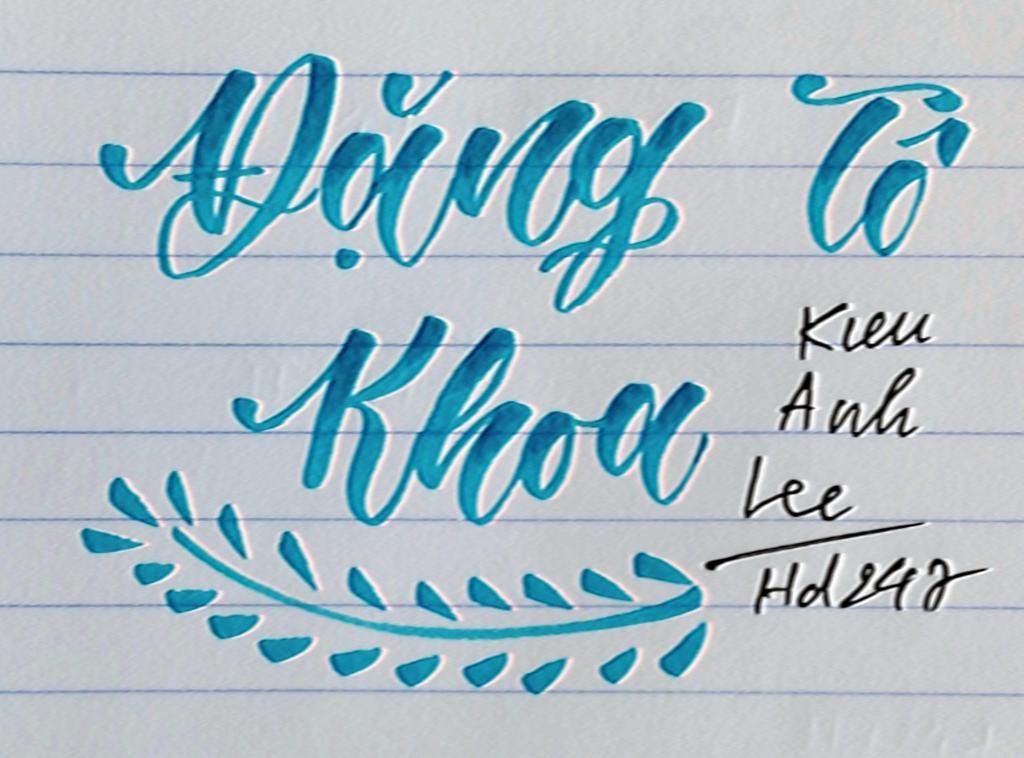 Đặng Tô
Khoa
Kieu
Anh
Lee
Hd247